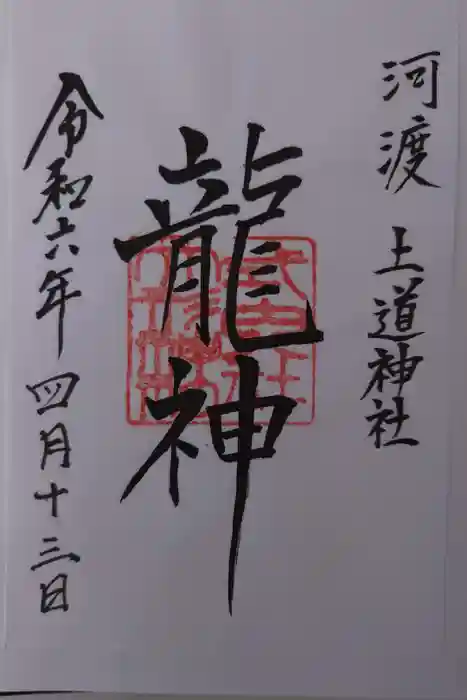 河渡 上道神社
龍神
令和六年四月十三日